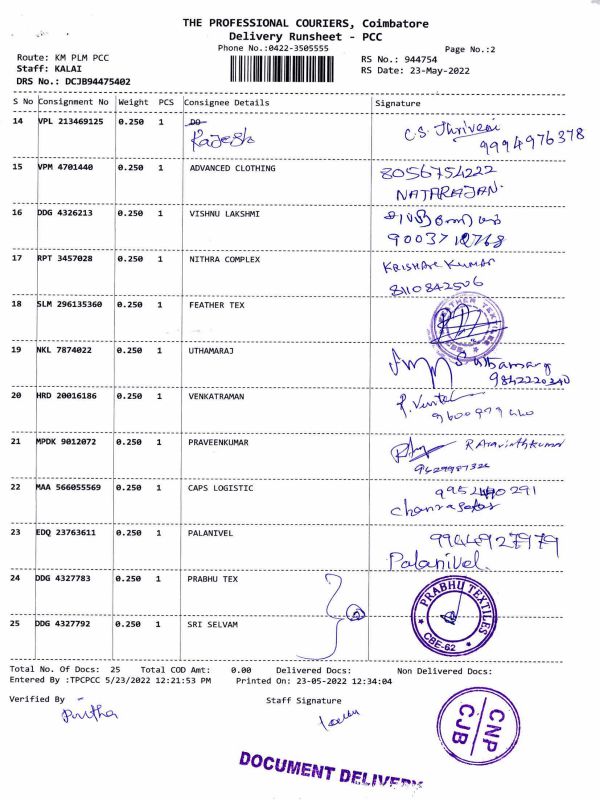 THE PROFESSIONAL COURIERS, Coimbatore
Delivery Runsheet - PCC
Phone No.:0422-3505555
Page No.:2
Route: KM PLM PCC
RS No.: 944754
Staff: KALAI
RS Date: 23-May-2022
DRS No.: DCJB94475402
S No Consignment No Weight PCS Consignee Details Signature
14 VPL 213469125 0.250 1 DO
Rajesh
C.S. Thriveni
9994976378
15 VPM 4701440 0.250 1 ADVANCED CLOTHING
8056754222
NATARAJAN.
16 DDG 4326213 0.250 1 VISHNU LAKSHMI
17 RPT 3457028 0.250 1 NITHRA COMPLEX
KUMAR
8110842506
18 SLM 296135360 0.250 1 FEATHER TEX
19 NKL 7874022 0.250 1 UTHAMARAJ
9842220340
20 HRD 20016186 0.250 1 VENKATRAMAN
21 MPDK 9012072 0.250 1 PRAVEENKUMAR
R Aravinthkumar
22 MAA 566055569 0.250 1 CAPS LOGISTIC
23 EDQ 23763611 0.250 1 PALANIVEL
9944927979
Palanivel.
24 DDG 4327783 0.250 1 PRABHU TEX
PRABHU TEXTILES
CBE-62
25 DDG 4327792 0.250 1 SRI SELVAM
Total No. Of Docs: 25 Total COD Amt: 0.00 Delivered Docs: Non Delivered Docs:
Entered By :TPCPCC 5/23/2022 12:21:53 PM Printed On: 23-05-2022 12:34:04
Verified By -
Staff Signature
CNP
CJB
DOCUMENT DELIVERY